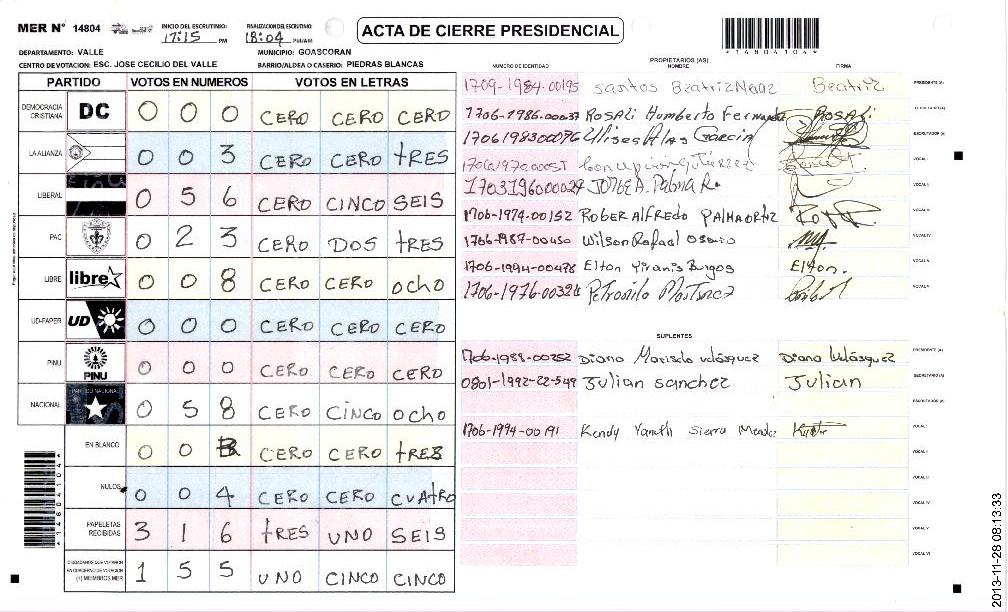 MER Nº 14804
INICIO DEL ESCRUTINIO: 17:15 PM
FINALIZACION DEL ESCRUTINIO: 18:04 PM/AM
ACTA DE CIERRE PRESIDENCIAL
*14804104*
DEPARTAMENTO: VALLE
MUNICIPIO: GOASCORAN
CENTRO DE VOTACION: ESC. JOSE CECILIO DEL VALLE
BARRIO/ALDEA O CASERIO: PIEDRAS BLANCAS
PARTIDO VOTOS EN NUMEROS VOTOS EN LETRAS
DEMOCRACIA CRISTIANA DC 0 0 0 CERO CERO CERO
LA ALIANZA 0 0 3 CERO CERO tRES
LIBERAL 0 5 6 CERO CINCO SEIS
PAC 0 2 3 CERO DOS tRES
LIBRE libre 0 0 8 CERO CERO ocho
UD-FAPER UD 0 0 0 CERO CERO CERO
PINU PINU 0 0 0 CERO CERO CERO
NACIONAL 0 5 8 CERO CINCO ocho
EN BLANCO 0 0 3 CERO CERO tRES
NULOS 0 0 4 CERO CERO CVAtRO
PAPELETAS RECIBIDAS 3 1 6 tRES UNO SEIS
CIUDADANOS QUE VOTARON EN CUADERNO DE VOTACION (+) MIEMBROS MER 1 5 5 UNO CINCO CINCO
PROPIETARIOS (AS)
NUMERO DE IDENTIDAD NOMBRE FIRMA
1709-1984-00195 santos Beatriz Beatriz PRESIDENTE (A)
1706-1986-00037 Rosali Humberto ROSALi
Ulises Garcia SECRETARIO (A)
VOCAL I
JORGE A. Palma R. VOCAL II
1706-1974-00152 ROBER ALFREDO PALMA ORTIZ VOCAL III
1706-1987-00450 Wilson Rafael Osorio VOCAL IV
1706-1994-00478 Elton Yiranis Burgos Elton. VOCAL V
Petronilo Martinez VOCAL VI
SUPLENTES
1706-1988-00252 Diana Marisela velásquez Diana Velásquez PRESIDENTE (A)
0801-1992-22549 Julian sanchez Julian SECRETARIO (A)
ESCRUTADOR (A)
1706-1994-00191 Kendy Yaneth Sierra Mendez VOCAL I
VOCAL II
VOCAL III
VOCAL IV
VOCAL V
VOCAL VI
*14804104*
2013-11-28 08:13:33